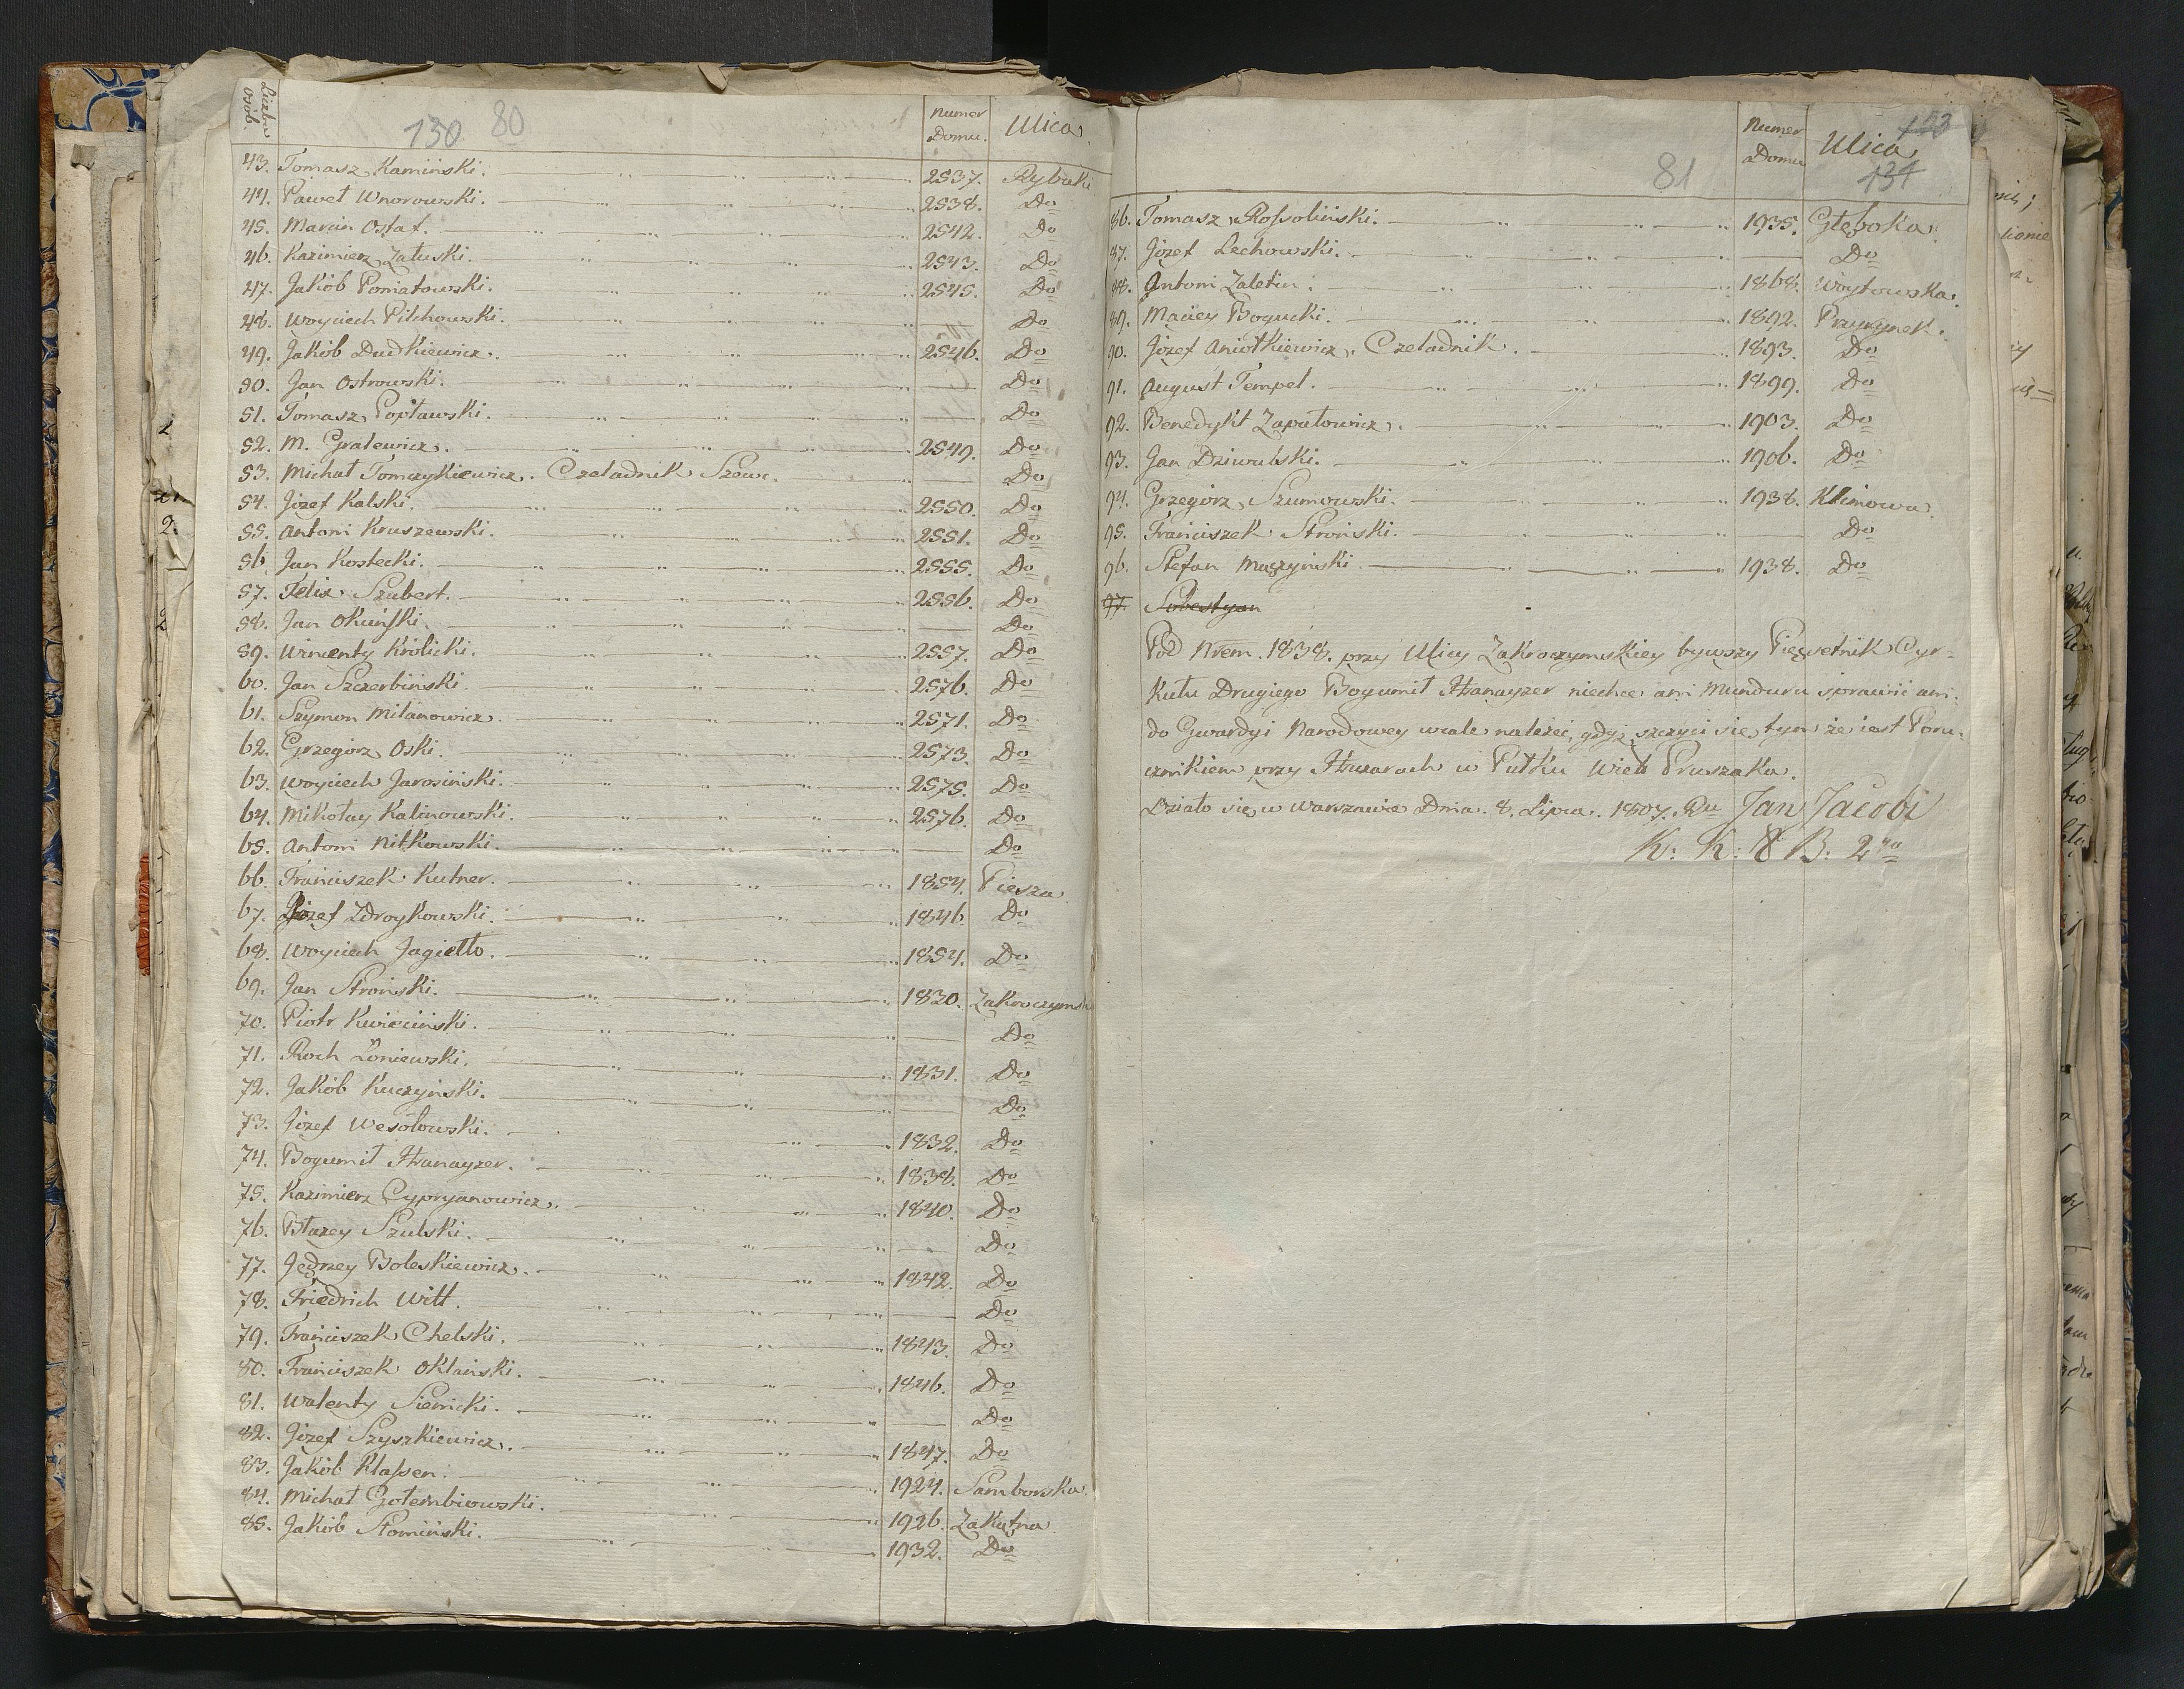 Liczba osób. 130 80 Numer Domu. Ulica
43. Tomasz Kamiński. 2537. Rybaki
44. Paweł Wnorowski. 2538. Do
45. Marcin Ostaf. 2542. Do
46. Kazimierz Załuski. 2543. Do
47. Jakób Poniatowski. 2545. Do
48. Woyciech Pilchowski. — Do
49. Jakób Dudkiewicz. 2546. Do
50. Jan Ostrowski. — Do
51. Tomasz Popławski. — Do
52. M. Gralewicz. 2549. Do
53. Michał Tomczykiewicz. Czeladnik Szewc. — Do
54. Józef Kalski. 2550. Do
55. Antoni Kruszewski. 2551. Do
56. Jan Kostecki. 2555. Do
57. Felix Szubert. 2556. Do
58. Jan Okuński. — Do
59. Wincenty Królicki. 2557. Do
60. Jan Szczerbiński. 2576. Do
61. Szymon Milanowicz. 2571. Do
62. Grzegórz Oski. 2573. Do
63. Woyciech Jarosiński. 2575. Do
64. Mikołay Kalinowski. 2576. Do
65. Antoni Nitkowski. — Do
66. Franciszek Kutner. 1854. Piesza
67. Józef Zdroykowski. 1846. Do
68. Woyciech Jagiełło. 1854. Do
69. Jan Stroński. 1830. Zakroczymsk
70. Piotr Kwieciński. — Do
71. Roch Łoniewski. 1831. Do
72. Jakób Kuczyński. — Do
73. Józef Wesołowski. 1832. Do
74. Bogumił Hranayzer. 1838. Do
75. Kazimierz Cypryanowicz. 1840. Do
76. Błazey Szulski. — Do
77. Jędrzey Boleskiewicz. 1842. Do
78. Friedrich Witt. — Do
79. Franciszek Chelski. 1843. Do
80. Franciszek Oklański. 1846. Do
81. Walenty Siemicki. — Do
82. Józef Szyszkiewicz. 1847. Do
83. Jakób Klassen. 1924. Samborska.
84. Michał Gołembiowski. 1926. Zakątna
85. Jakób Słomiński. 1932. Do
81 Numer Domu Ulica 133 134
86. Tomasz Rossoliński. 1935. Głęboka.
87. Józef Lechowski. — Do
88. Antoni Zaletin. 1868. Woytowska.
89. Maciey Bogucki. 1892. Przyrynek.
90. Józef Aniołkiewicz. Czeladnik. 1893. Do
91. August Tempel. 1899. Do
92. Benedykt Zapałowicz. 1903. Do
93. Jan Dziwulski. 1906. Do
94. Grzegórz Szumowski. 1938. Klimowa.
95. Franciszek Stroński. — Do
96. Stefan Mączyński. 1938. Do
97. Sobestyan
Pod Nrem. 1838. przy Ulicy Zakroczymskiey bywszy Pięsetnik Cyr-
kułu Drugiego Bogumił Hranayzer niechce ani Munduru sprawić ani
do Gwardyi Narodowey wcale należeć, gdyż szczyci się tym że iest Poru-
cznikiem przy Huzarach w Pułku Wieb Pruszaka.
Działo się w Warszawie Dnia 8. Lipca 1807. Ru Jan Jacobi
K: K: 8 B: 2go